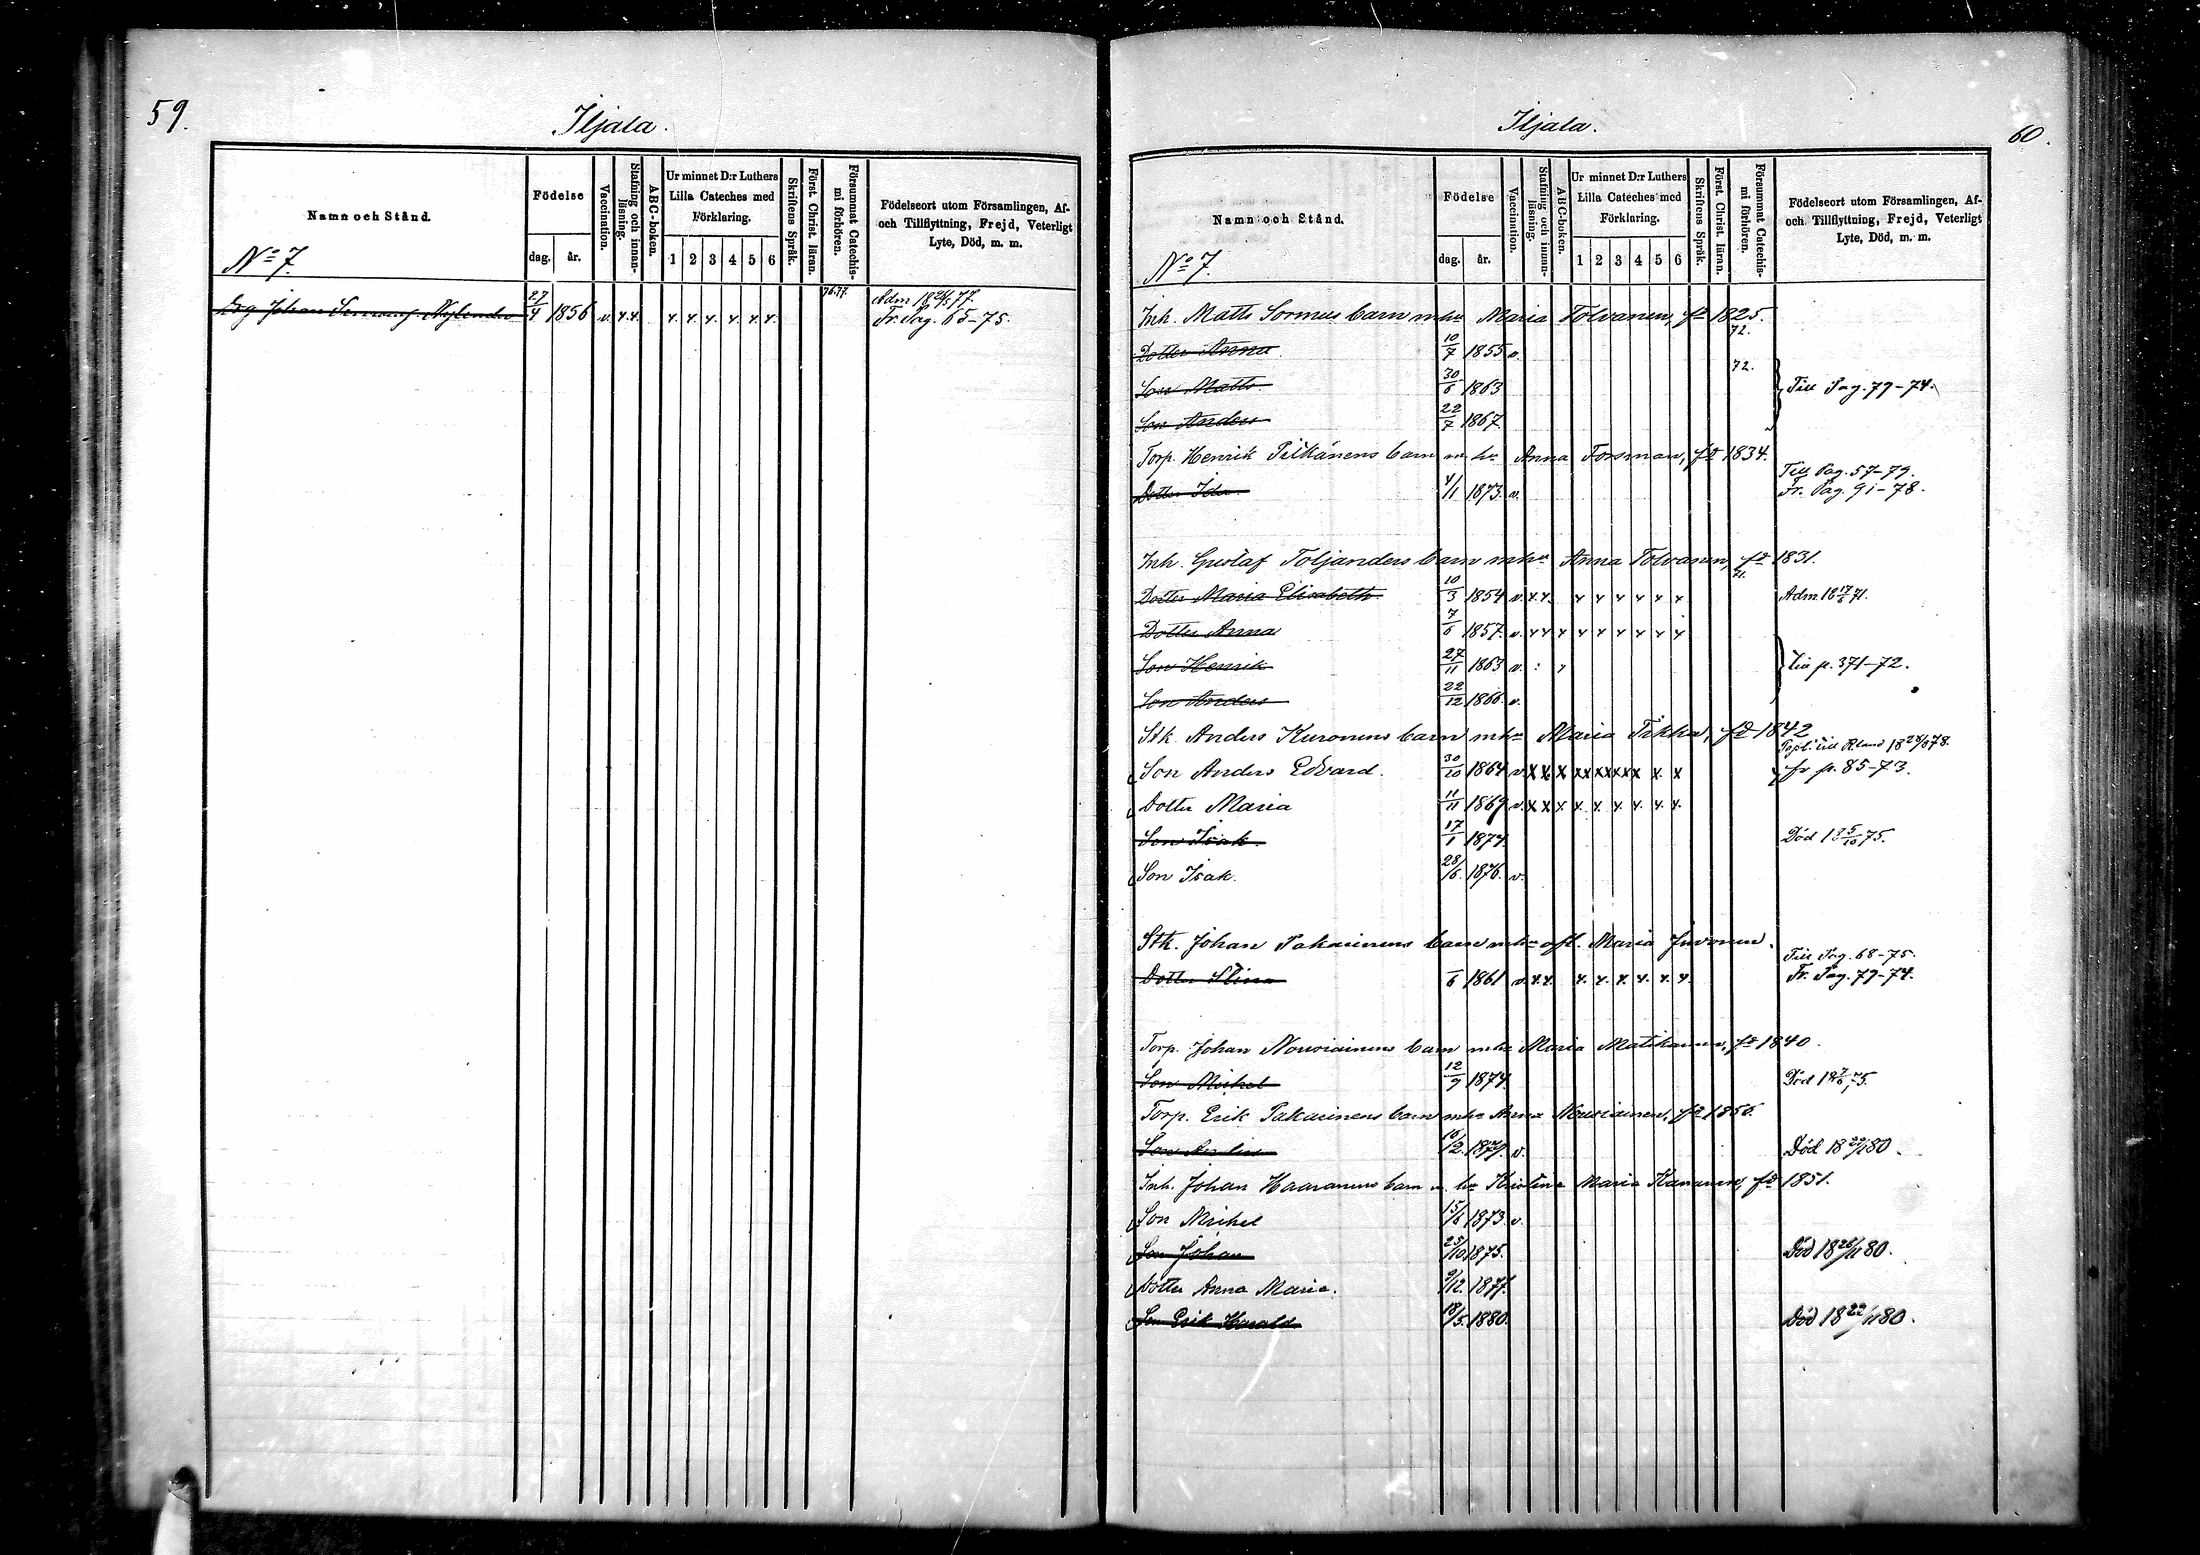 59.
Iljala.
Namn och Stånd.
Födelse
dag. år.
Vaccination.
Stafning och innanläsning.
ABC-boken.
Ur minnet D:r Luthers
Lilla Cateches med
Förklaring.
1 2 3 4 5 6
Skriftens Språk.
Först. Christ. läran.
Försummat Catechismi förhören.
Födelseort utom Församlingen, Af-
och Tillflyttning, Frejd, Veterligt
Lyte, Död, m. m.
No 7.
76.77.
Adm 18 77.
Drg Johan Nylander 27/4 1856 v. x.x. x. x. x. x. x. x. Fr. Pag. 65-75.
Iljala.
60.
Namn och Stånd.
Födelse
dag. år.
Vaccination.
Stafning och innanläsning.
ABC-boken.
Ur minnet D:r Luthers
Lilla Cateches med
Förklaring.
1 2 3 4 5 6
Skriftens Språk.
Först. Christ. läran.
Försummat Catechismi förhören.
Födelseort utom Församlingen, Af-
och Tillflyttning, Frejd, Veterligt
Lyte, Död, m. m.
No 7.
Inh. Matts Sormus barn m hu Maria Tolvanen, fd 1825.
Dotter Anna 10/7 1855 v. 72.
Son Matts 30/6 1863 72. Till Pag. 79-74.
Son Anders 22/7 1867.
Torp. Henrik Pitkänens barn m. hu Anna Forsman, fd 1834.
Till Pag. 57-79.
Dotter Ida 4/1 1873. v. Fr. Pag. 91-78.
Inh. Gustaf Toljanders barn m hu Anna Tolvanen, fd 1831.
Dotter Maria Elisabeth 10/3 1854 v. x.x. x x x x x x 71. Adm 18 17/6 71.
Dotter Anna 7/6 1857. v. x x x x x x x x x
Son Henrik 27/11 1863 v. : , Till p. 371-72.
Son Anders 22/12 1866. v.
Stk. Anders Kuronens barn m hu Maria Tikka, fd 1842
till Rland 18 78.
Son Anders Edvard. 30/10 1864 v. x x x x x x x x x x x fr p. 85-73.
Dotter Maria 11/11 1869 v. x x x. x. x. x. x. x. x.
Son Isak. 17/1 1874. Död 18 5/10 75.
Son Isak. 28/6. 1876. v.
Stk. Johan Pakarinens barn m hu afl. Maria Juvonen.
Till Pag. 68-75.
Dotter Stina /6 1861 v. x.x. x. x. x. x. x. x. Fr. Pag. 79-74.
Torp. Johan Nousiainens barn m hu Maria Matikainen, fd 1840.
Son Mikel 12/9 1874. Död 18 7/6 75.
Torp. Erik Pakarinens barn m hu Anna Nousiainen, fd 1856.
Son 16/2. 1879. v. Död 18 80.
Inh. Johan Haaranens barn m. hu Kristina Maria Kananen, fd 1851.
Son Mikel 15/6 1873. v.
Son Johan 25/10 1875. Död 18 26/11 80.
Dotter Anna Maria. 9/12. 1877.
Son Erik Harald 18/5. 1880. Död 18 22/11 80.